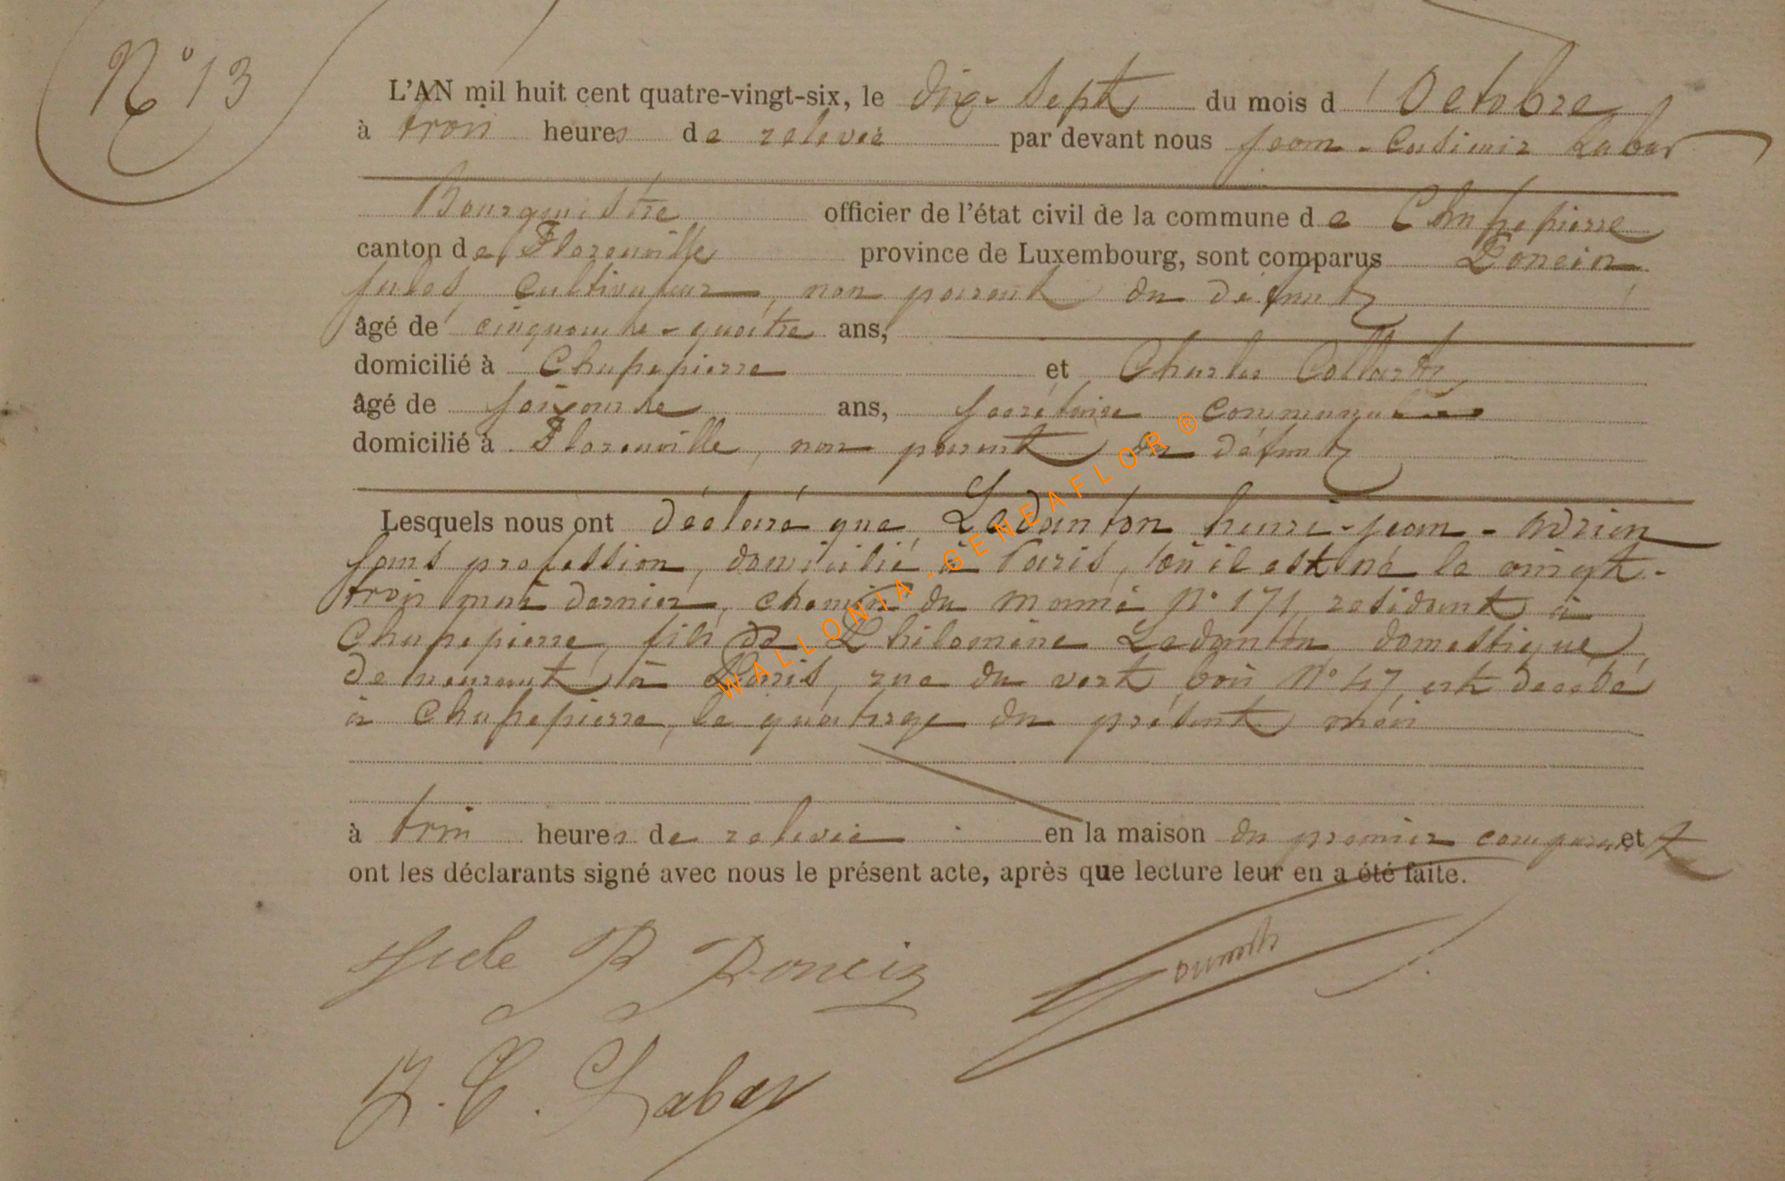 N° 13
L'AN mil huit cent quatre-vingt-six, le dix-sept du mois d'Octobre
à trois heures de relevée par devant nous jean-Casimir Labar
Bourgmestre officier de l'état civil de la commune de Chassepierre
canton de Florenville province de Luxembourg, sont comparus Poncin
jules, cultivateur, non parent du défunt
âgé de cinquante-quatre ans,
domicilié à Chassepierre et Charles Collart
âgé de soixante ans, secrétaire communal
domicilié à Florenville, non parent du défunt
Lesquels nous ont déclaré que Ledanton henri-jean-Adrien
sans profession, domicilié à Paris, où il est né le vingt-
trois mai dernier, chemin du N° 171, résidant à
Chassepierre, fils de Philomène Ledanton domestique
demeurant à Paris, rue du vert bois N° 47, est décédé
à Chassepierre, le quatorze du présent mois
à trois heures de relevée en la maison du premier comparant et
ont les déclarants signé avec nous le présent acte, après que lecture leur en a été faite.
Poncin
J. C. Labar
WALLONIA - GENEAFLOR ®